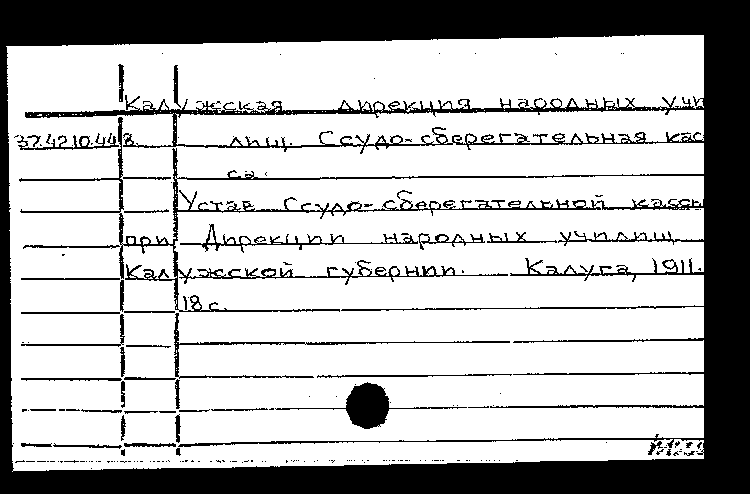 Калужская дирекция народных учи
37.4210.448 лищ. Ссудо-сберегательная кас
са.
Устав Ссудо-сберегательной кассы
при Дирекции народных училищ
Калужской губернии. Калуга, 1911.
18 с.